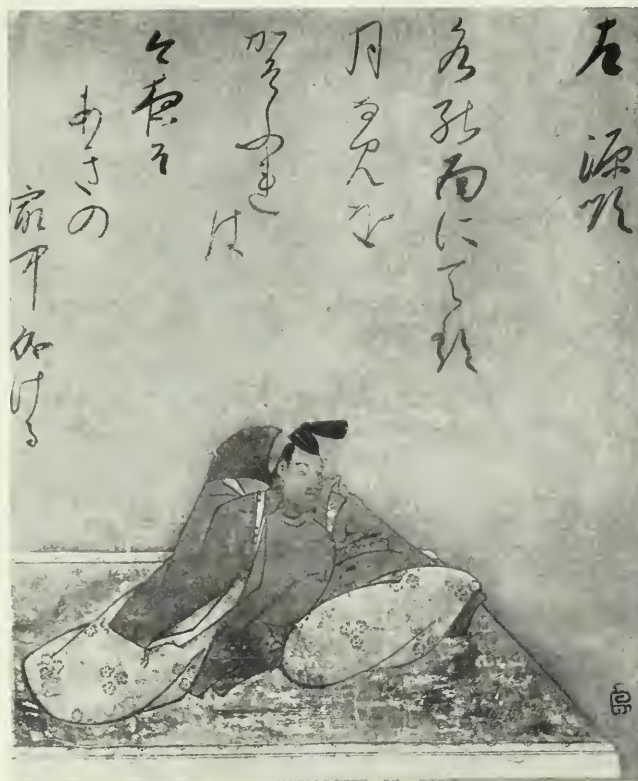 左 源順
水能面にてる
月なみを
かそふれ
は
今宵そ
あきの
最中なりける